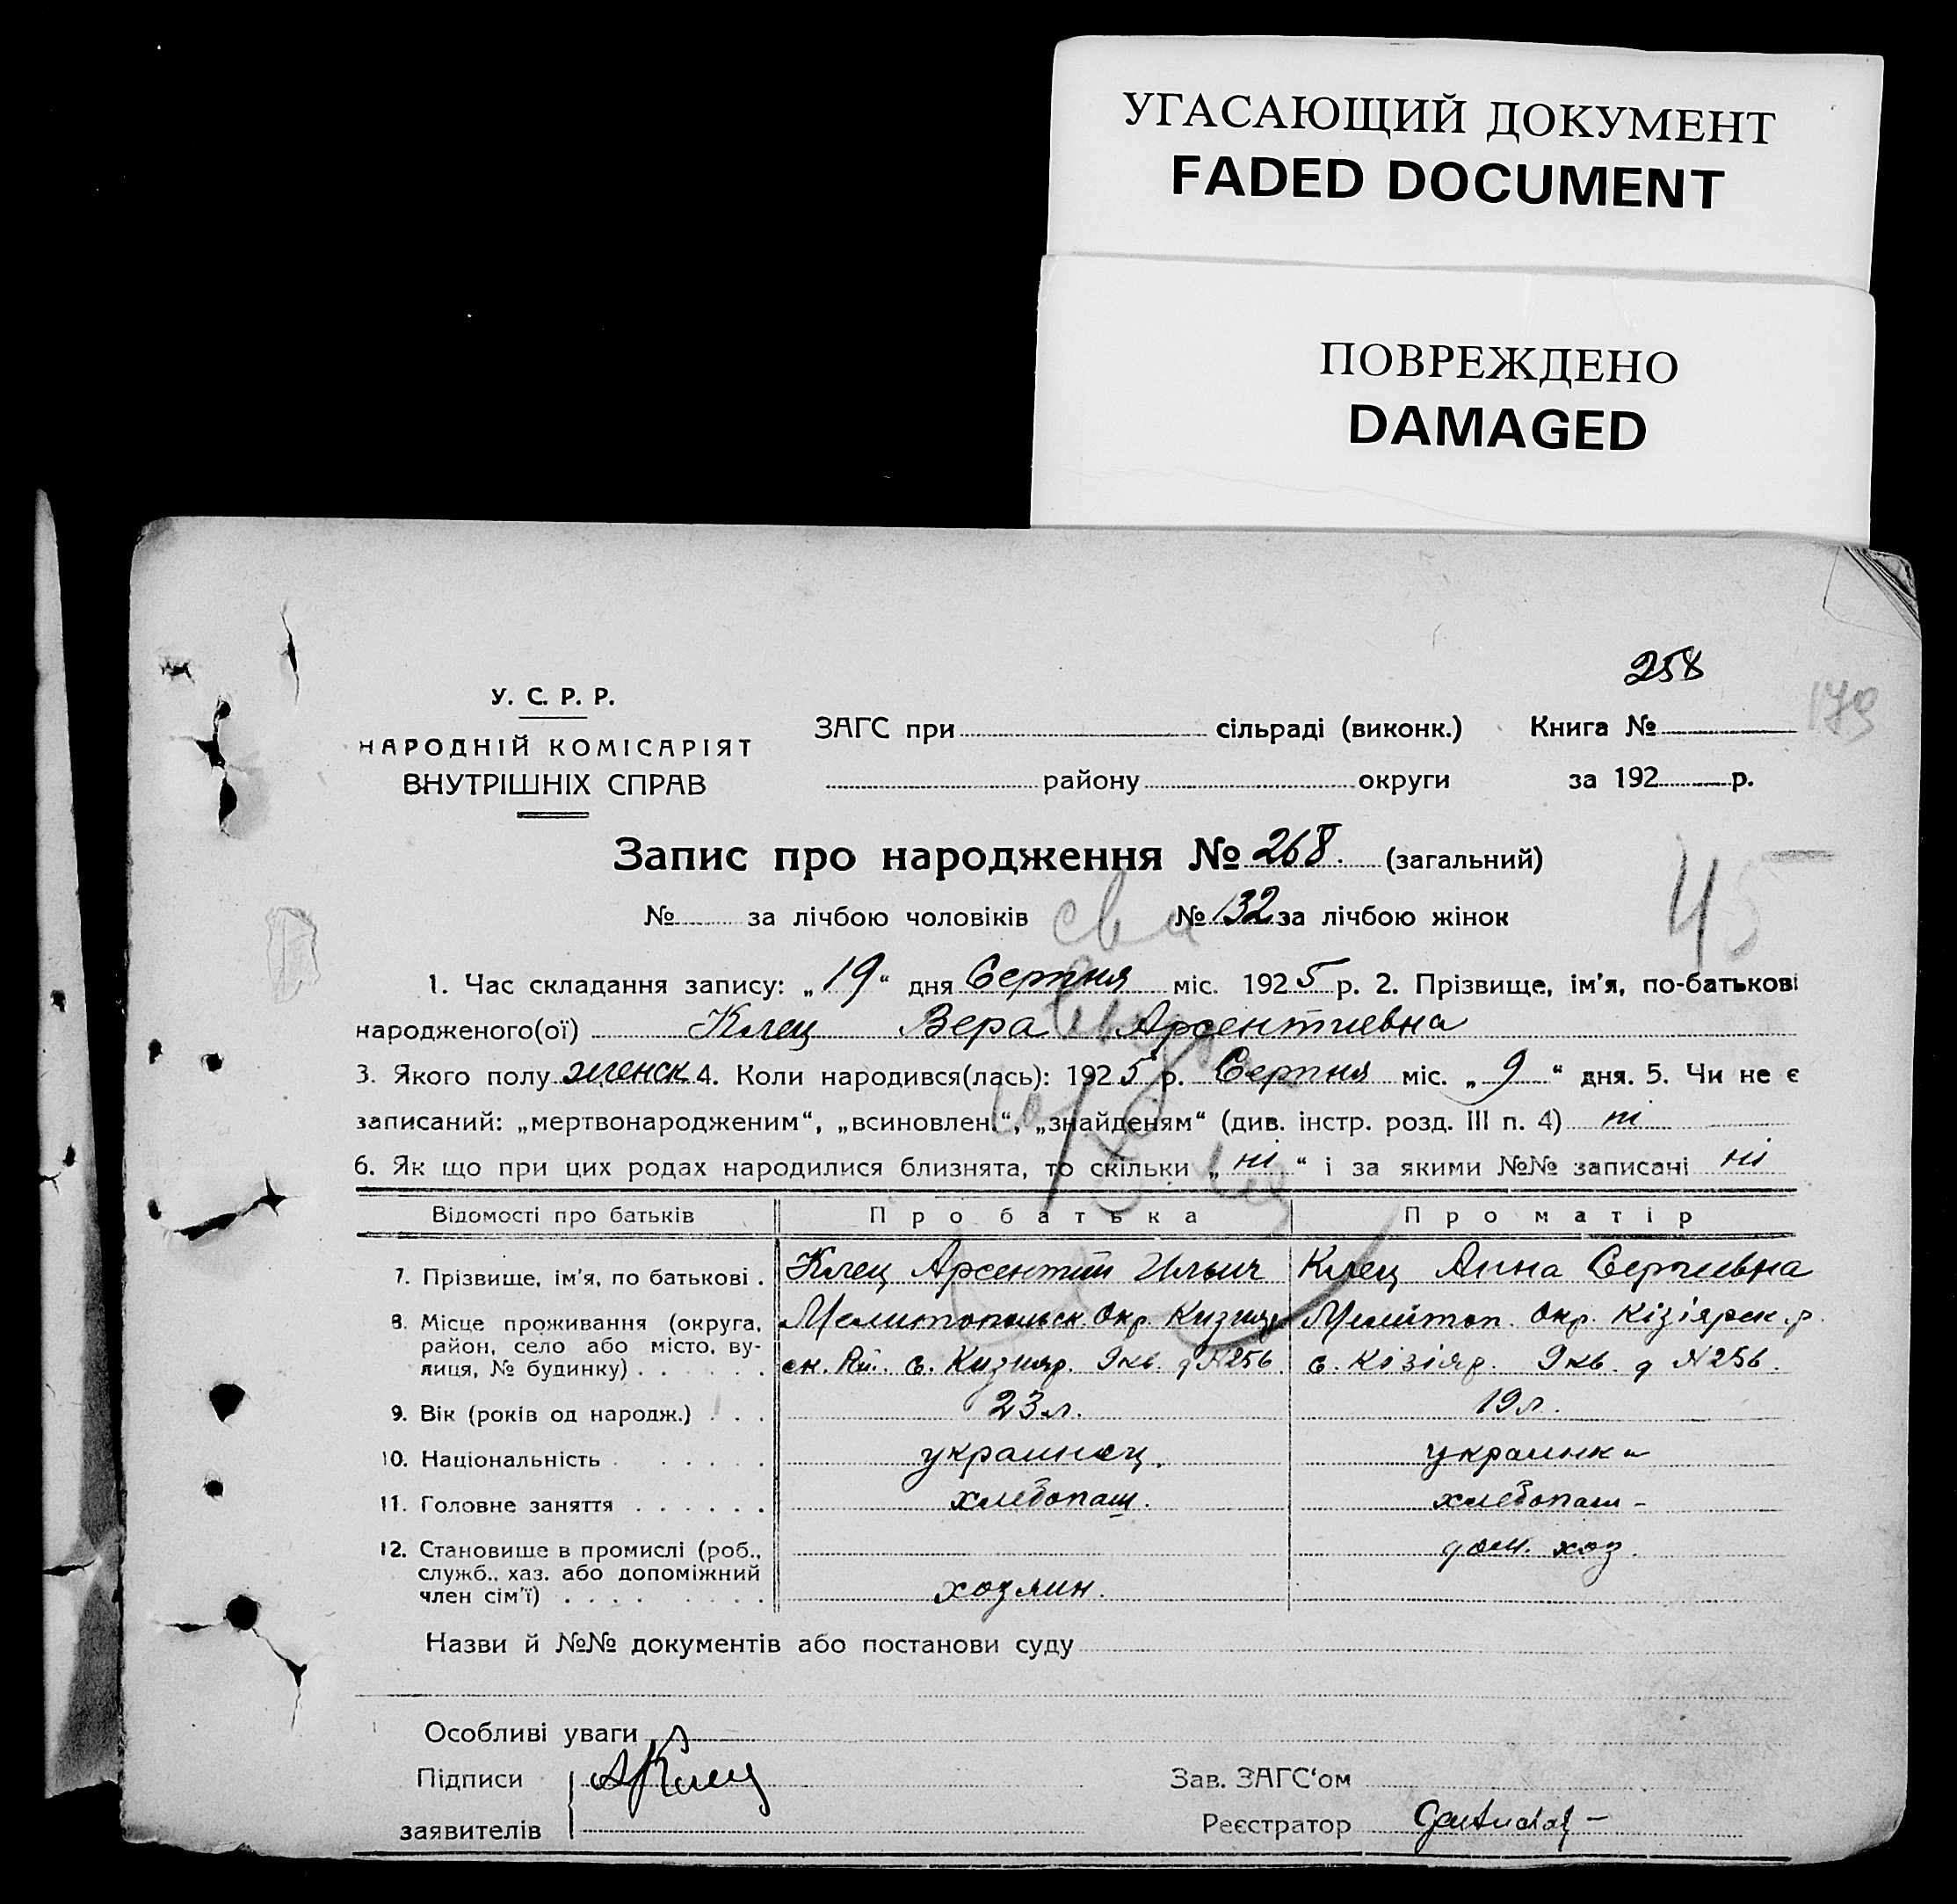 УГАСАЮЩИЙ ДОКУМЕНТ
FADED DOCUMENT
ПОВРЕЖДЕНО
DAMAGED
258
179
У. С. Р. Р.
НАРОДНІЙ КОМІСАРІЯТ
ВНУТРІШНІХ СПРАВ
ЗАГС при сільраді (виконк.) Книга №
району округи за 192 р.
Запис про народження № 268. (загальний)
№ за лічбою чоловіків № 132 за лічбою жінок
45
1. Час складання запису: „19“ дня Серпня міс. 1925 р. 2. Прізвище, ім'я, по-батькові
народженого(ої) Клец Вера Арсентиевна
3. Якого полу женск 4. Коли народився(лась): 1925 р. Серпня міс. „9“ дня. 5. Чи не є
записаний: „мертвонародженим“, „всиновлен.“, „знайденям“ (див. інстр. розд. III п. 4) ні
6. Як що при цих родах народилися близнята, то скільки „ні“ і за якими №№ записані ні
Відомості про батьків Про батька Про матір
7. Прізвище, ім'я, по батькові . Клец Арсентий Ильич Клец Анна Сергиевна
8. Місце проживання (округа, район, село або місто, вулиця, № будинку) . . . . . .
Мелитопольск Окр. Кизияр
ск. Рай. с. Кизияр. 9 кв. д N 256.
Мелітоп. Окр. Кізіярск. р.
с. Кізіяр. 9 кв. д N 256.
9. Вік (років од народж.) . . . 23 л. 19 л.
10. Національність . . . . . . украинец. украинка
11. Головне заняття . . . . . . хлебопаш. хлебопаш-
12. Становище в промислі (роб., служб., хаз. або допоміжний член сім'ї) . . . . . . . .
хозяин.
дом. хоз.
Назви й №№ документів або постанови суду
Особливі уваги
Підписи АКлец Зав. ЗАГС'ом
заявителів Реєстратор